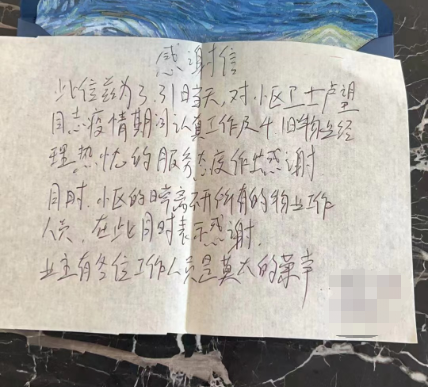 感谢信
此信兹为3.31日当天,对小区卫士卢
同志疫情期间认真工作及4.1日物业经
理热忱的服务态度作共感谢
同时,小区的日常离不开所有的物业工作
人员,在此同时表示感谢.
业主有各位工作人员是莫大的荣幸